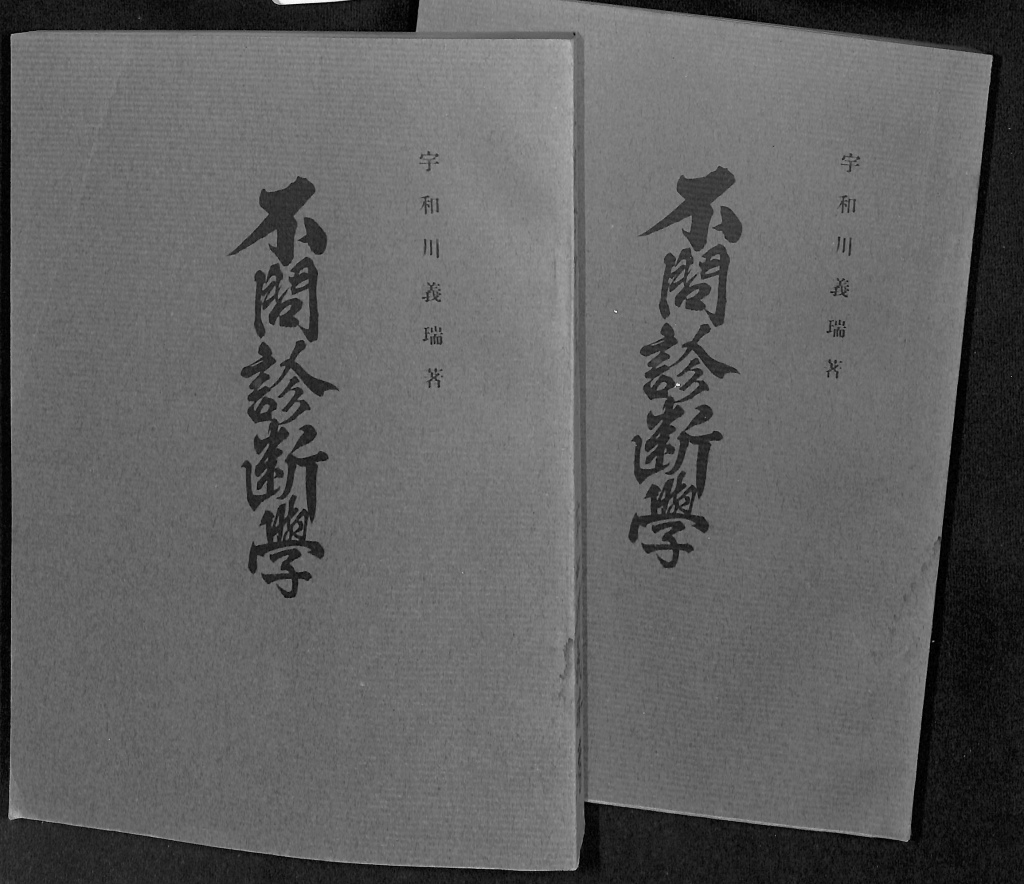 宇和川義瑞著
不問診断學
宇和川義瑞著
不問診断學